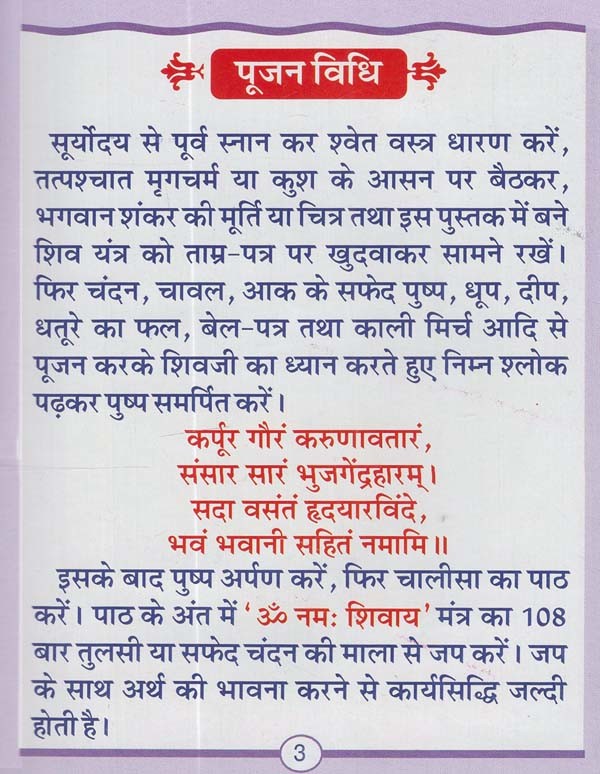 पूजन विधि
सूर्योदय से पूर्व स्नान कर श्वेत वस्त्र धारण करें,
तत्पश्चात मृगचर्म या कुश के आसन पर बैठकर,
भगवान शंकर की मूर्ति या चित्र तथा इस पुस्तक में बने
शिव यंत्र को ताम्र-पत्र पर खुदवाकर सामने रखें।
फिर चंदन, चावल, आक के सफेद पुष्प, धूप, दीप,
धतूरे का फल, बेल-पत्र तथा काली मिर्च आदि से
पूजन करके शिवजी का ध्यान करते हुए निम्न श्लोक
पढ़कर पुष्प समर्पित करें।
कर्पूर गौरं करुणावतारं,
संसार सारं भुजगेंद्रहारम्।
सदा वसंतं हृदयारविंदे,
भवं भवानी सहितं नमामि॥
इसके बाद पुष्प अर्पण करें, फिर चालीसा का पाठ
करें। पाठ के अंत में ‘ॐ नमः शिवाय’ मंत्र का 108
बार तुलसी या सफेद चंदन की माला से जप करें। जप
के साथ अर्थ की भावना करने से कार्यसिद्धि जल्दी
होती है।
3